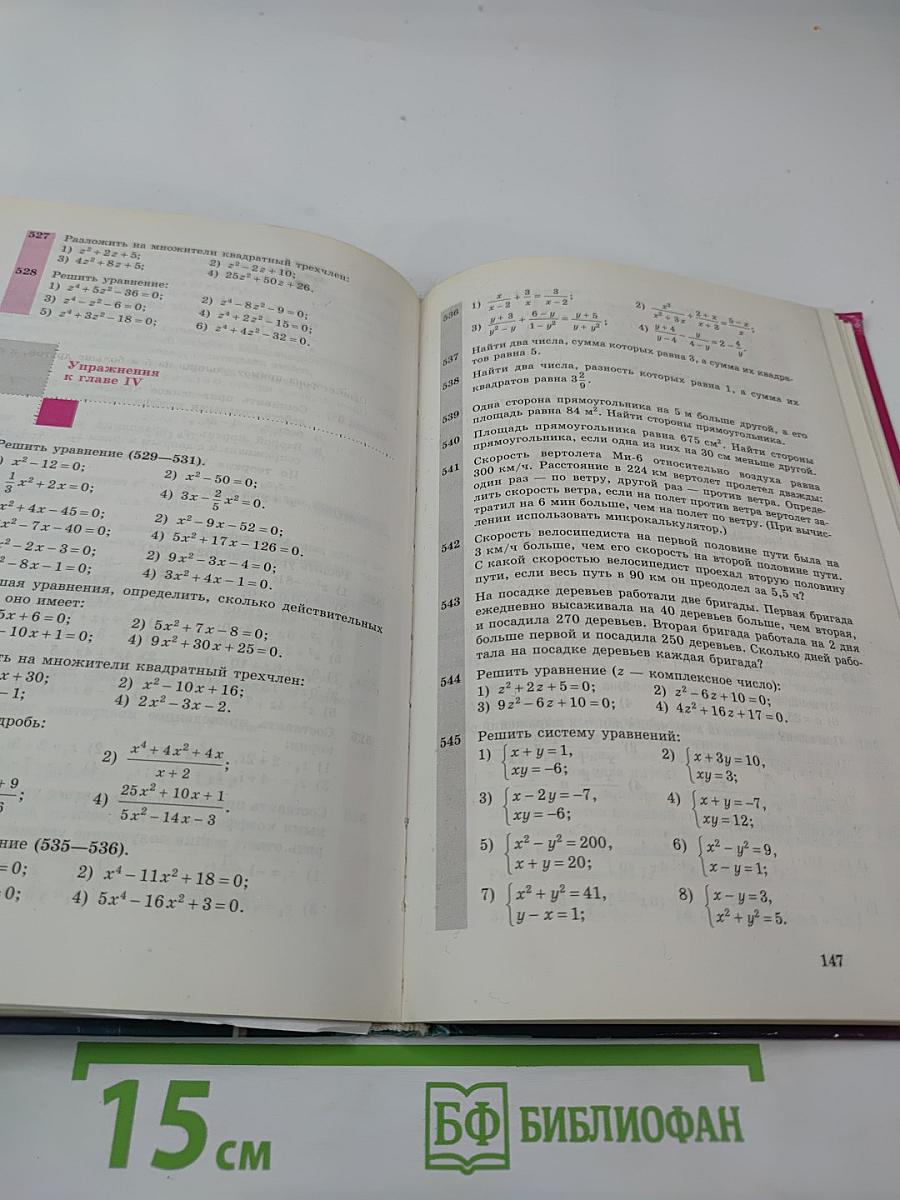 527
Разложить на множители квадратный трехчлен:
1) z²+2z+5; 2) z²−2z+10;
3) 4z²+8z+5; 4) 25z²+50z+26.
528
Решить уравнение:
1) z⁴+5z²−36=0; 2) z⁴−8z²−9=0;
3) z⁴−z²−6=0; 4) z⁴+2z²−15=0;
5) z⁴+3z²−18=0; 6) z⁴+4z²−32=0.
Упражнения
к главе IV
Решить уравнение (529—531).
) x²−12=0; 2) x²−50=0;
1/3 x²+2x=0; 4) 3x−2/5 x²=0.
x²+4x−45=0; 2) x²−9x−52=0;
x²−7x−40=0; 4) 5x²+17x−126=0.
²−2x−3=0; 2) 9x²−3x−4=0;
²−8x−1=0; 4) 3x²+4x−1=0.
шая уравнения, определить, сколько действительных
оно имеет:
5x+6=0; 2) 5x²+7x−8=0;
−10x+1=0; 4) 9x²+30x+25=0.
ть на множители квадратный трехчлен:
x+30; 2) x²−10x+16;
−1; 4) 2x²−3x−2.
дробь:
2) (x⁴+4x²+4x)/(x+2);
+9
6; 4) (25x²+10x+1)/(5x²−14x−3).
ние (535—536).
=0; 2) x⁴−11x²+18=0;
0; 4) 5x⁴−16x²+3=0.
536 1) x/(x−2)+3/x=3/(x−2); 2) x²/(x²+3x)+(2+x)/(x+3)=(5−x)/x;
3) (y+3)/(y²−y)+(6−y)/(1−y²)=(y+5)/(y+y²); 4) (y+4)/(y−4)−y/(4−y)=2−4/y.
537 Найти два числа, сумма которых равна 3, а сумма их квадра-
тов равна 5.
538 Найти два числа, разность которых равна 1, а сумма их
квадратов равна 3 2/9.
539 Одна сторона прямоугольника на 5 м больше другой, а его
площадь равна 84 м². Найти стороны прямоугольника.
540 Площадь прямоугольника равна 675 см². Найти стороны
прямоугольника, если одна из них на 30 см меньше другой.
541 Скорость вертолета Ми-6 относительно воздуха равна
300 км/ч. Расстояние в 224 км вертолет пролетел дважды:
один раз — по ветру, другой раз — против ветра. Опреде-
лить скорость ветра, если на полет против ветра вертолет за-
тратил на 6 мин больше, чем на полет по ветру. (При вычис-
лении использовать микрокалькулятор.)
542 Скорость велосипедиста на первой половине пути была на
3 км/ч больше, чем его скорость на второй половине пути.
С какой скоростью велосипедист проехал вторую половину
пути, если весь путь в 90 км он преодолел за 5,5 ч?
543 На посадке деревьев работали две бригады. Первая бригада
ежедневно высаживала на 40 деревьев больше, чем вторая,
и посадила 270 деревьев. Вторая бригада работала на 2 дня
больше первой и посадила 250 деревьев. Сколько дней рабо-
тала на посадке деревьев каждая бригада?
544 Решить уравнение (z — комплексное число):
1) z²+2z+5=0; 2) z²−6z+10=0;
3) 9z²−6z+10=0; 4) 4z²+16z+17=0.
545 Решить систему уравнений:
1) { x+y=1, 2) { x+3y=10,
xy=−6; xy=3;
3) { x−2y=−7, 4) { x+y=−7,
xy=−6; xy=12;
5) { x²−y²=200, 6) { x²−y²=9,
x+y=20; x−y=1;
7) { x²+y²=41, 8) { x−y=3,
y−x=1; x²+y²=5.
147
15 см
БФ БИБЛИОФАН